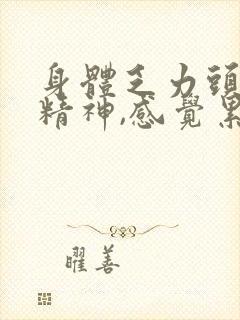 身體乏力頭
精神,感覺累
曜善